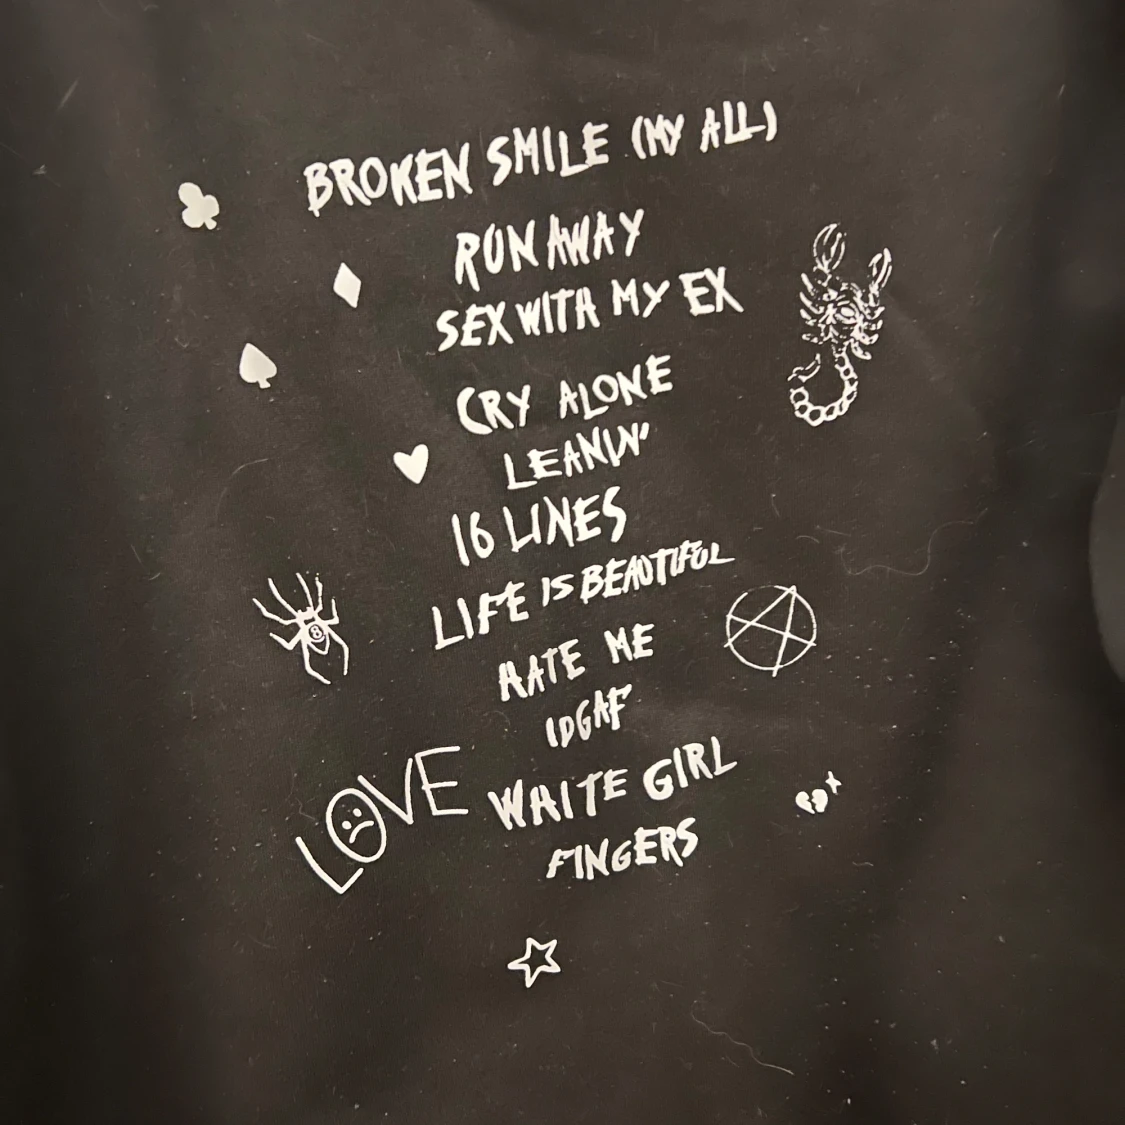 BROKEN SMILE (MY ALL)
RUNAWAY
SEX WITH MY EX
CRY ALONE
LEANIN'
16 LINES
LIFE IS BEAUTIFUL
HATE ME
IDGAF
LOVE
WHITE GIRL
FINGERS
8